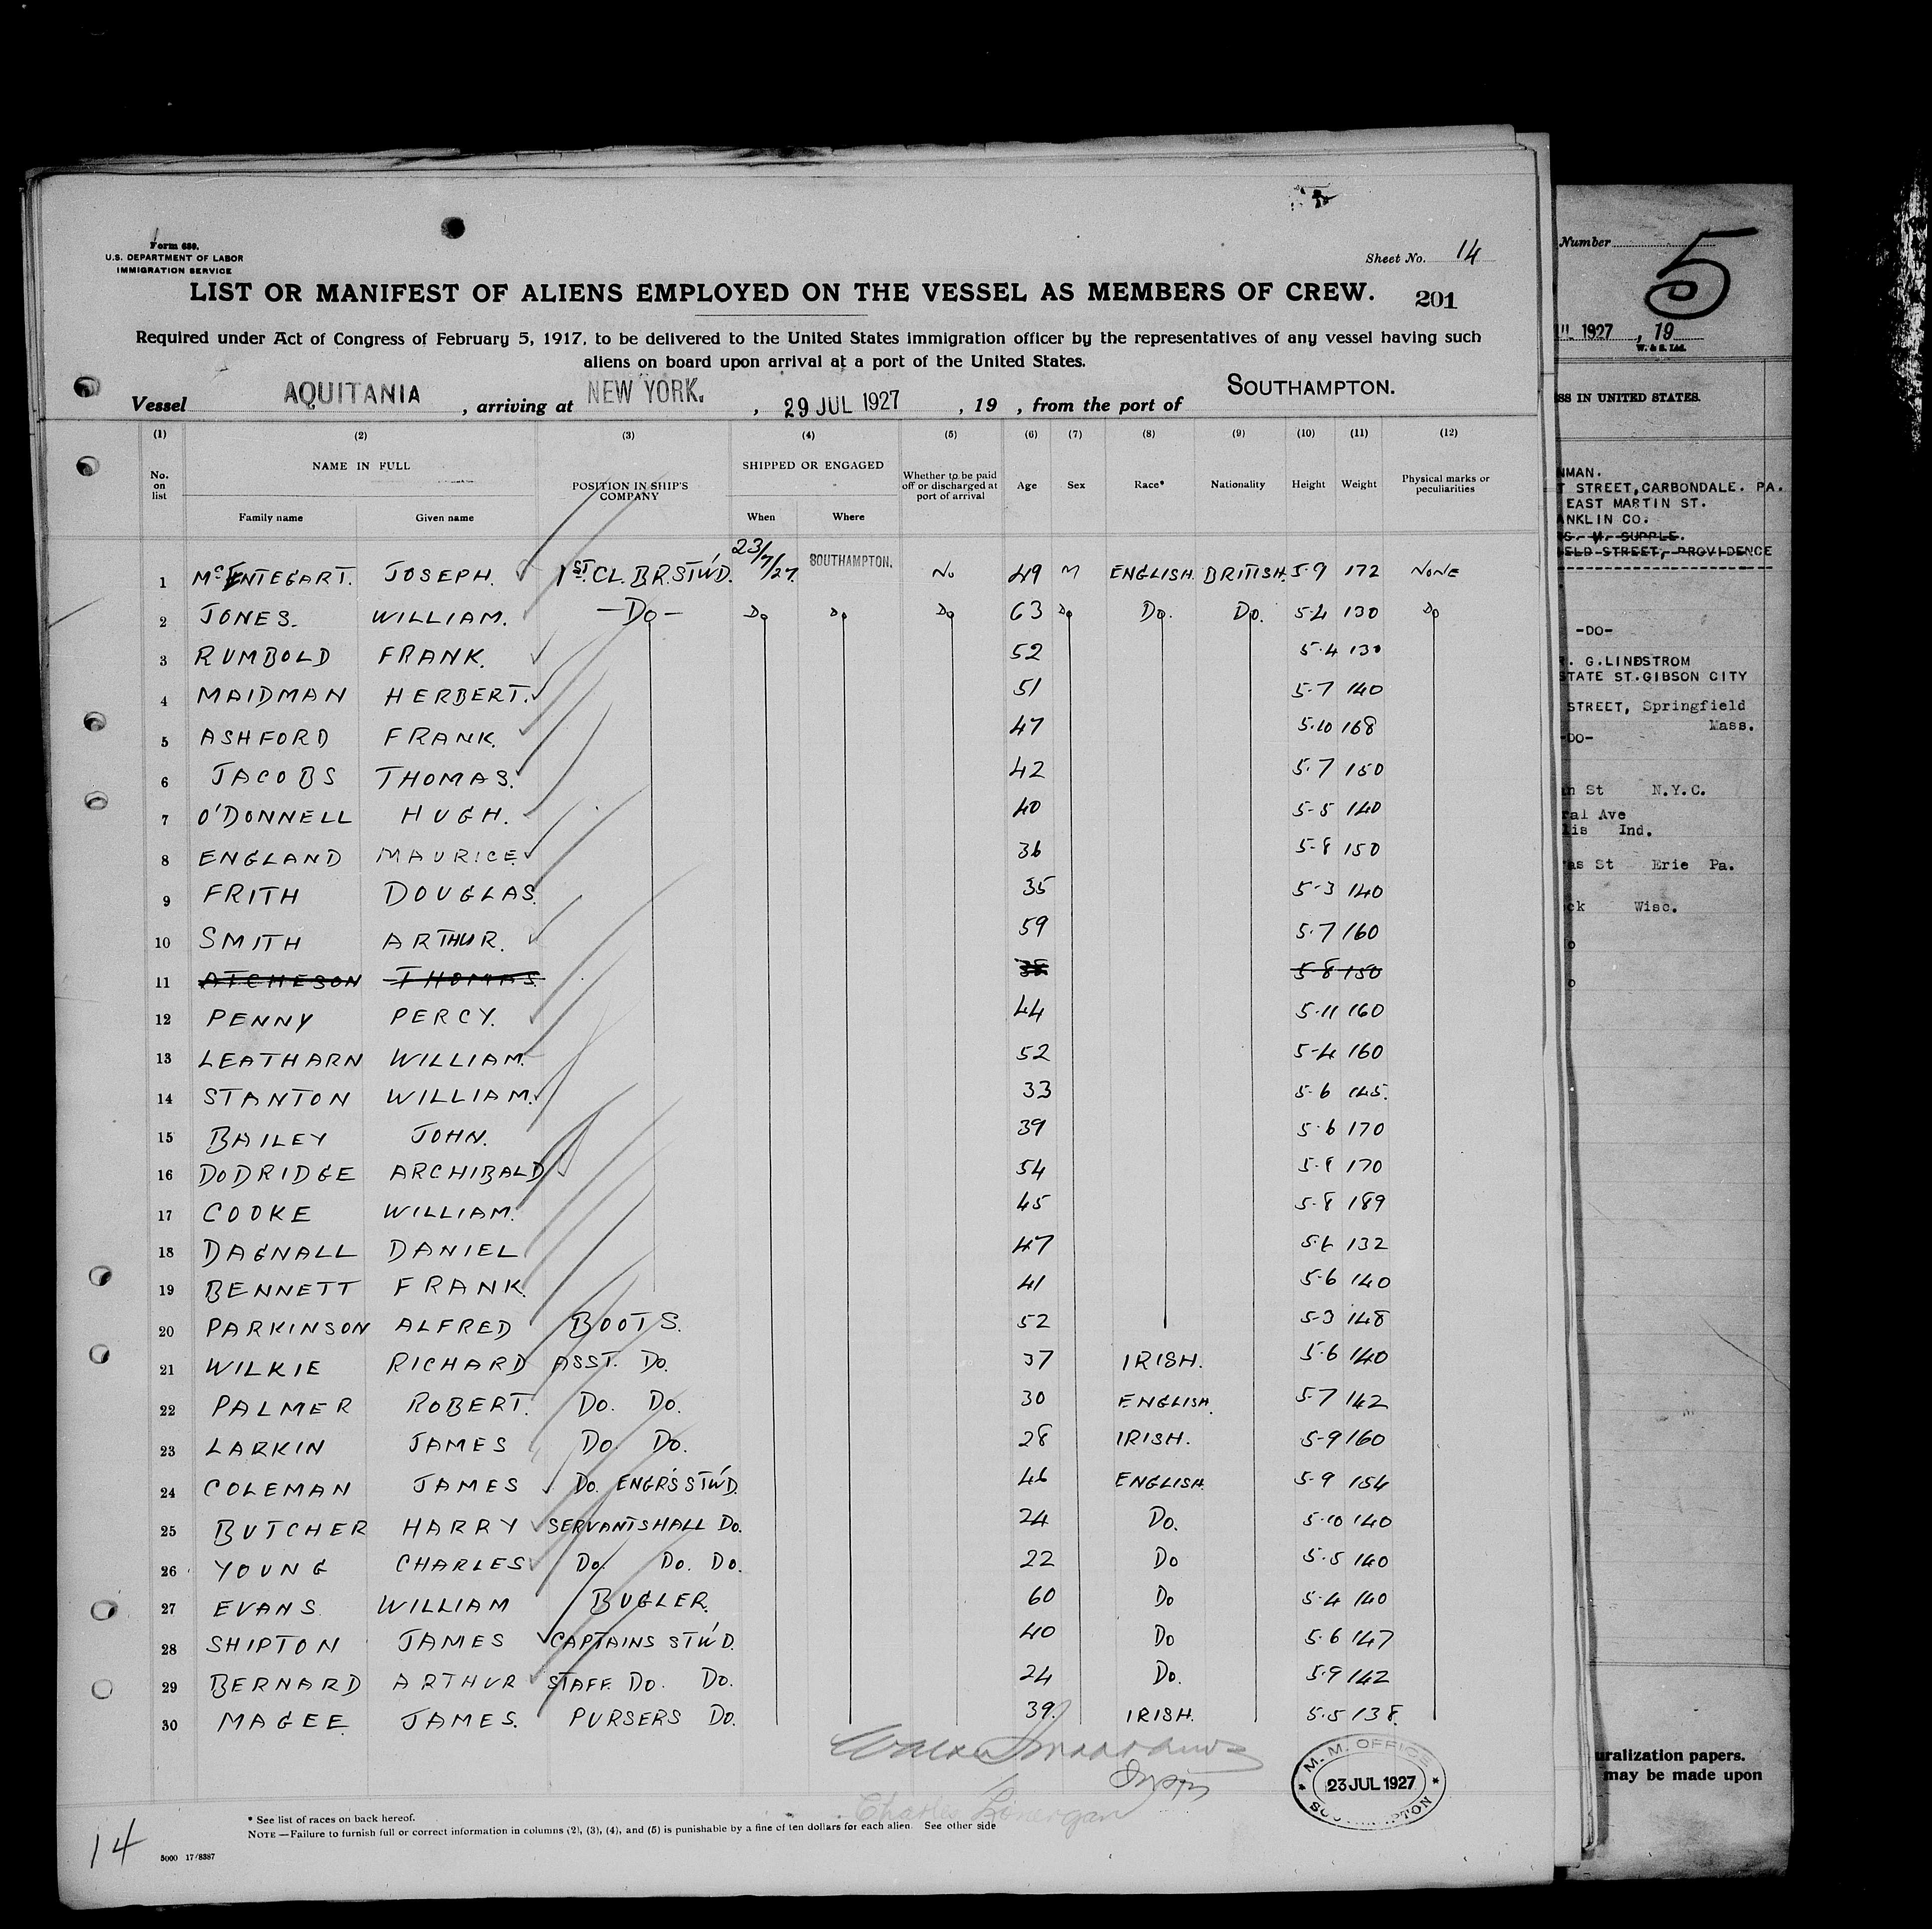 Form 680.
U.S. DEPARTMENT OF LABOR
IMMIGRATION SERVICE
Sheet No. 14
LIST OR MANIFEST OF ALIENS EMPLOYED ON THE VESSEL AS MEMBERS OF CREW. 201
Required under Act of Congress of February 5, 1917, to be delivered to the United States immigration officer by the representatives of any vessel having such
aliens on board upon arrival at a port of the United States.
Vessel AQUITANIA, arriving at NEW YORK., 29 JUL 1927, 19 , from the port of SOUTHAMPTON.
(1) (2) (3) (4) (5) (6) (7) (8) (9) (10) (11) (12)
No. on list NAME IN FULL POSITION IN SHIP'S COMPANY SHIPPED OR ENGAGED Whether to be paid off or discharged at port of arrival Age Sex Race* Nationality Height Weight Physical marks or peculiarities
Family name Given name When Where
1 McENTEGART. JOSEPH. 1ST CL. BR. STW'D. 23/7/27. SOUTHAMPTON. No 49 M ENGLISH. BRITISH. 5-9 172 NONE
2 JONES. WILLIAM. -Do- Do Do Do 63 Do Do. Do. 5-4 130 Do
3 RUMBOLD FRANK. 52 5.4 130
4 MAIDMAN HERBERT. 51 5.7 140
5 ASHFORD FRANK. 47 5.10 168
6 JACOBS THOMAS. 42 5.7 150
7 O'DONNELL HUGH. 40 5-5 140
8 ENGLAND MAURICE. 36 5-8 150
9 FRITH DOUGLAS. 35 5-3 140
10 SMITH ARTHUR. 59 5.7 160
11 ATCHESON THOMAS. 5-8 150
12 PENNY PERCY. 44 5.11 160
13 LEATHARN WILLIAM. 52 5-4 160
14 STANTON WILLIAM. 33 5-6 145.
15 BAILEY JOHN. 39 5.6 170
16 DODRIDGE ARCHIBALD 54 5-8 170
17 COOKE WILLIAM. 45 5-8 189
18 DAGNALL DANIEL 47 5.6 132
19 BENNETT FRANK. 41 5-6 140
20 PARKINSON ALFRED BOOTS. 52 5-3 148
21 WILKIE RICHARD ASST. Do. 37 IRISH. 5.6 140
22 PALMER ROBERT. Do. Do. 30 ENGLISH. 5-7 142
23 LARKIN JAMES Do. Do. 28 IRISH. 5-9 160
24 COLEMAN JAMES Do. ENGR'S STW'D. 46 ENGLISH. 5-9 154
25 BUTCHER HARRY SERVANTS HALL Do. 24 Do. 5-10 140
26 YOUNG CHARLES Do. Do. Do. 22 Do 5.5 140
27 EVANS WILLIAM BUGLER. 60 Do 5-4 140
28 SHIPTON JAMES CAPTAINS STW'D. 40 Do 5.6 147
29 BERNARD ARTHUR STAFF. Do. Do. 24 Do. 5.9 142
30 MAGEE JAMES. PURSERS Do. 39. IRISH. 5.5 138.
M. M. OFFICE
23 JUL 1927
* See list of races on back hereof.
NOTE—Failure to furnish full or correct information in columns (2), (3), (4), and (5) is punishable by a fine of ten dollars for each alien. See other side
Charles Lonergan
14
5000 17/8387
Number 5
1927, 19
W. & S. Ltd.
IN UNITED STATES.
STREET, CARBONDALE. PA.
EAST MARTIN ST.
CO.
M. SUPPLE.
STREET, PROVIDENCE
-DO-
G. LINDSTROM
STATE ST. GIBSON CITY
STREET, Springfield
Mass.
-DO-
St N.Y.C.
Ave
Ind.
St Erie Pa.
Wisc.
papers.
may be made upon